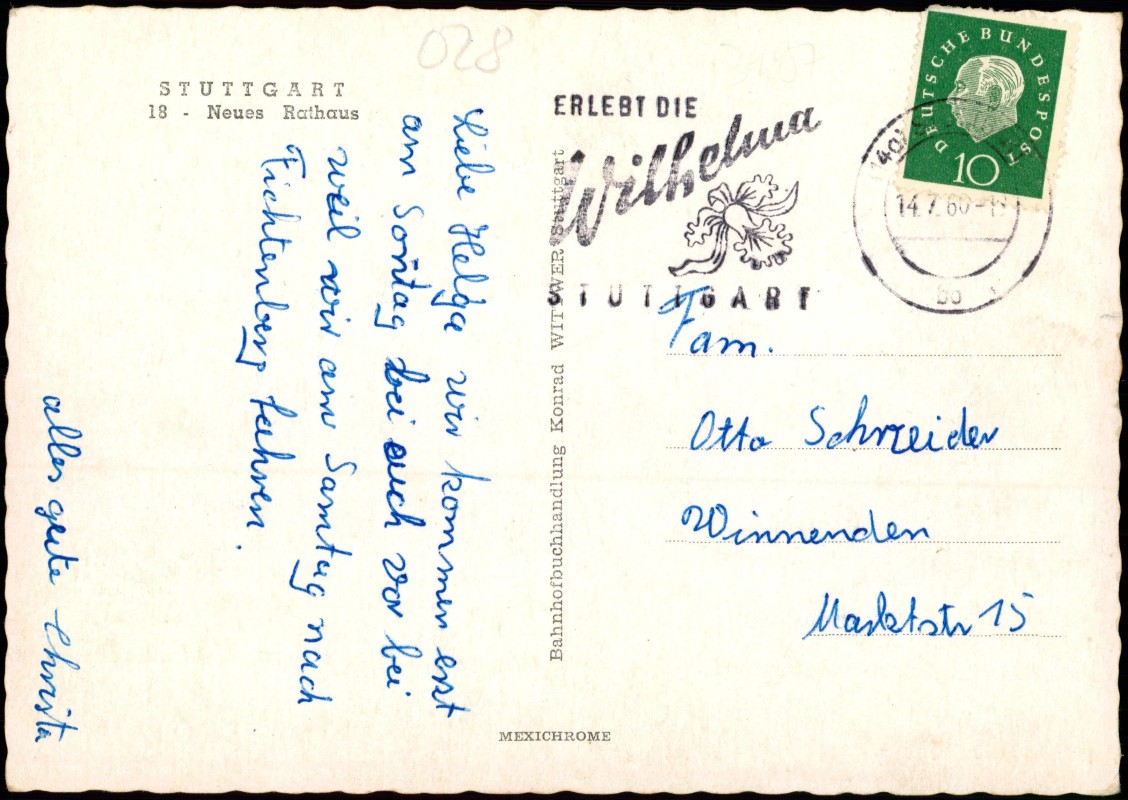 028
STUTTGART
18 - Neues Rathaus
Liebe Helga wir kommen erst
am Sontag bei euch vor bei
weil wir am Samtag nach
Fichtenberg fahren.
alles gute Christa
Bahnhofbuchhandlung Konrad WITTWER Stuttgart
MEXICHROME
ERLEBT DIE
Wilhelma
STUTTGART
DEUTSCHE BUNDESPOST
10
14.7.60
Fam.
Otto Schneider
Winnenden
Marktstr 15